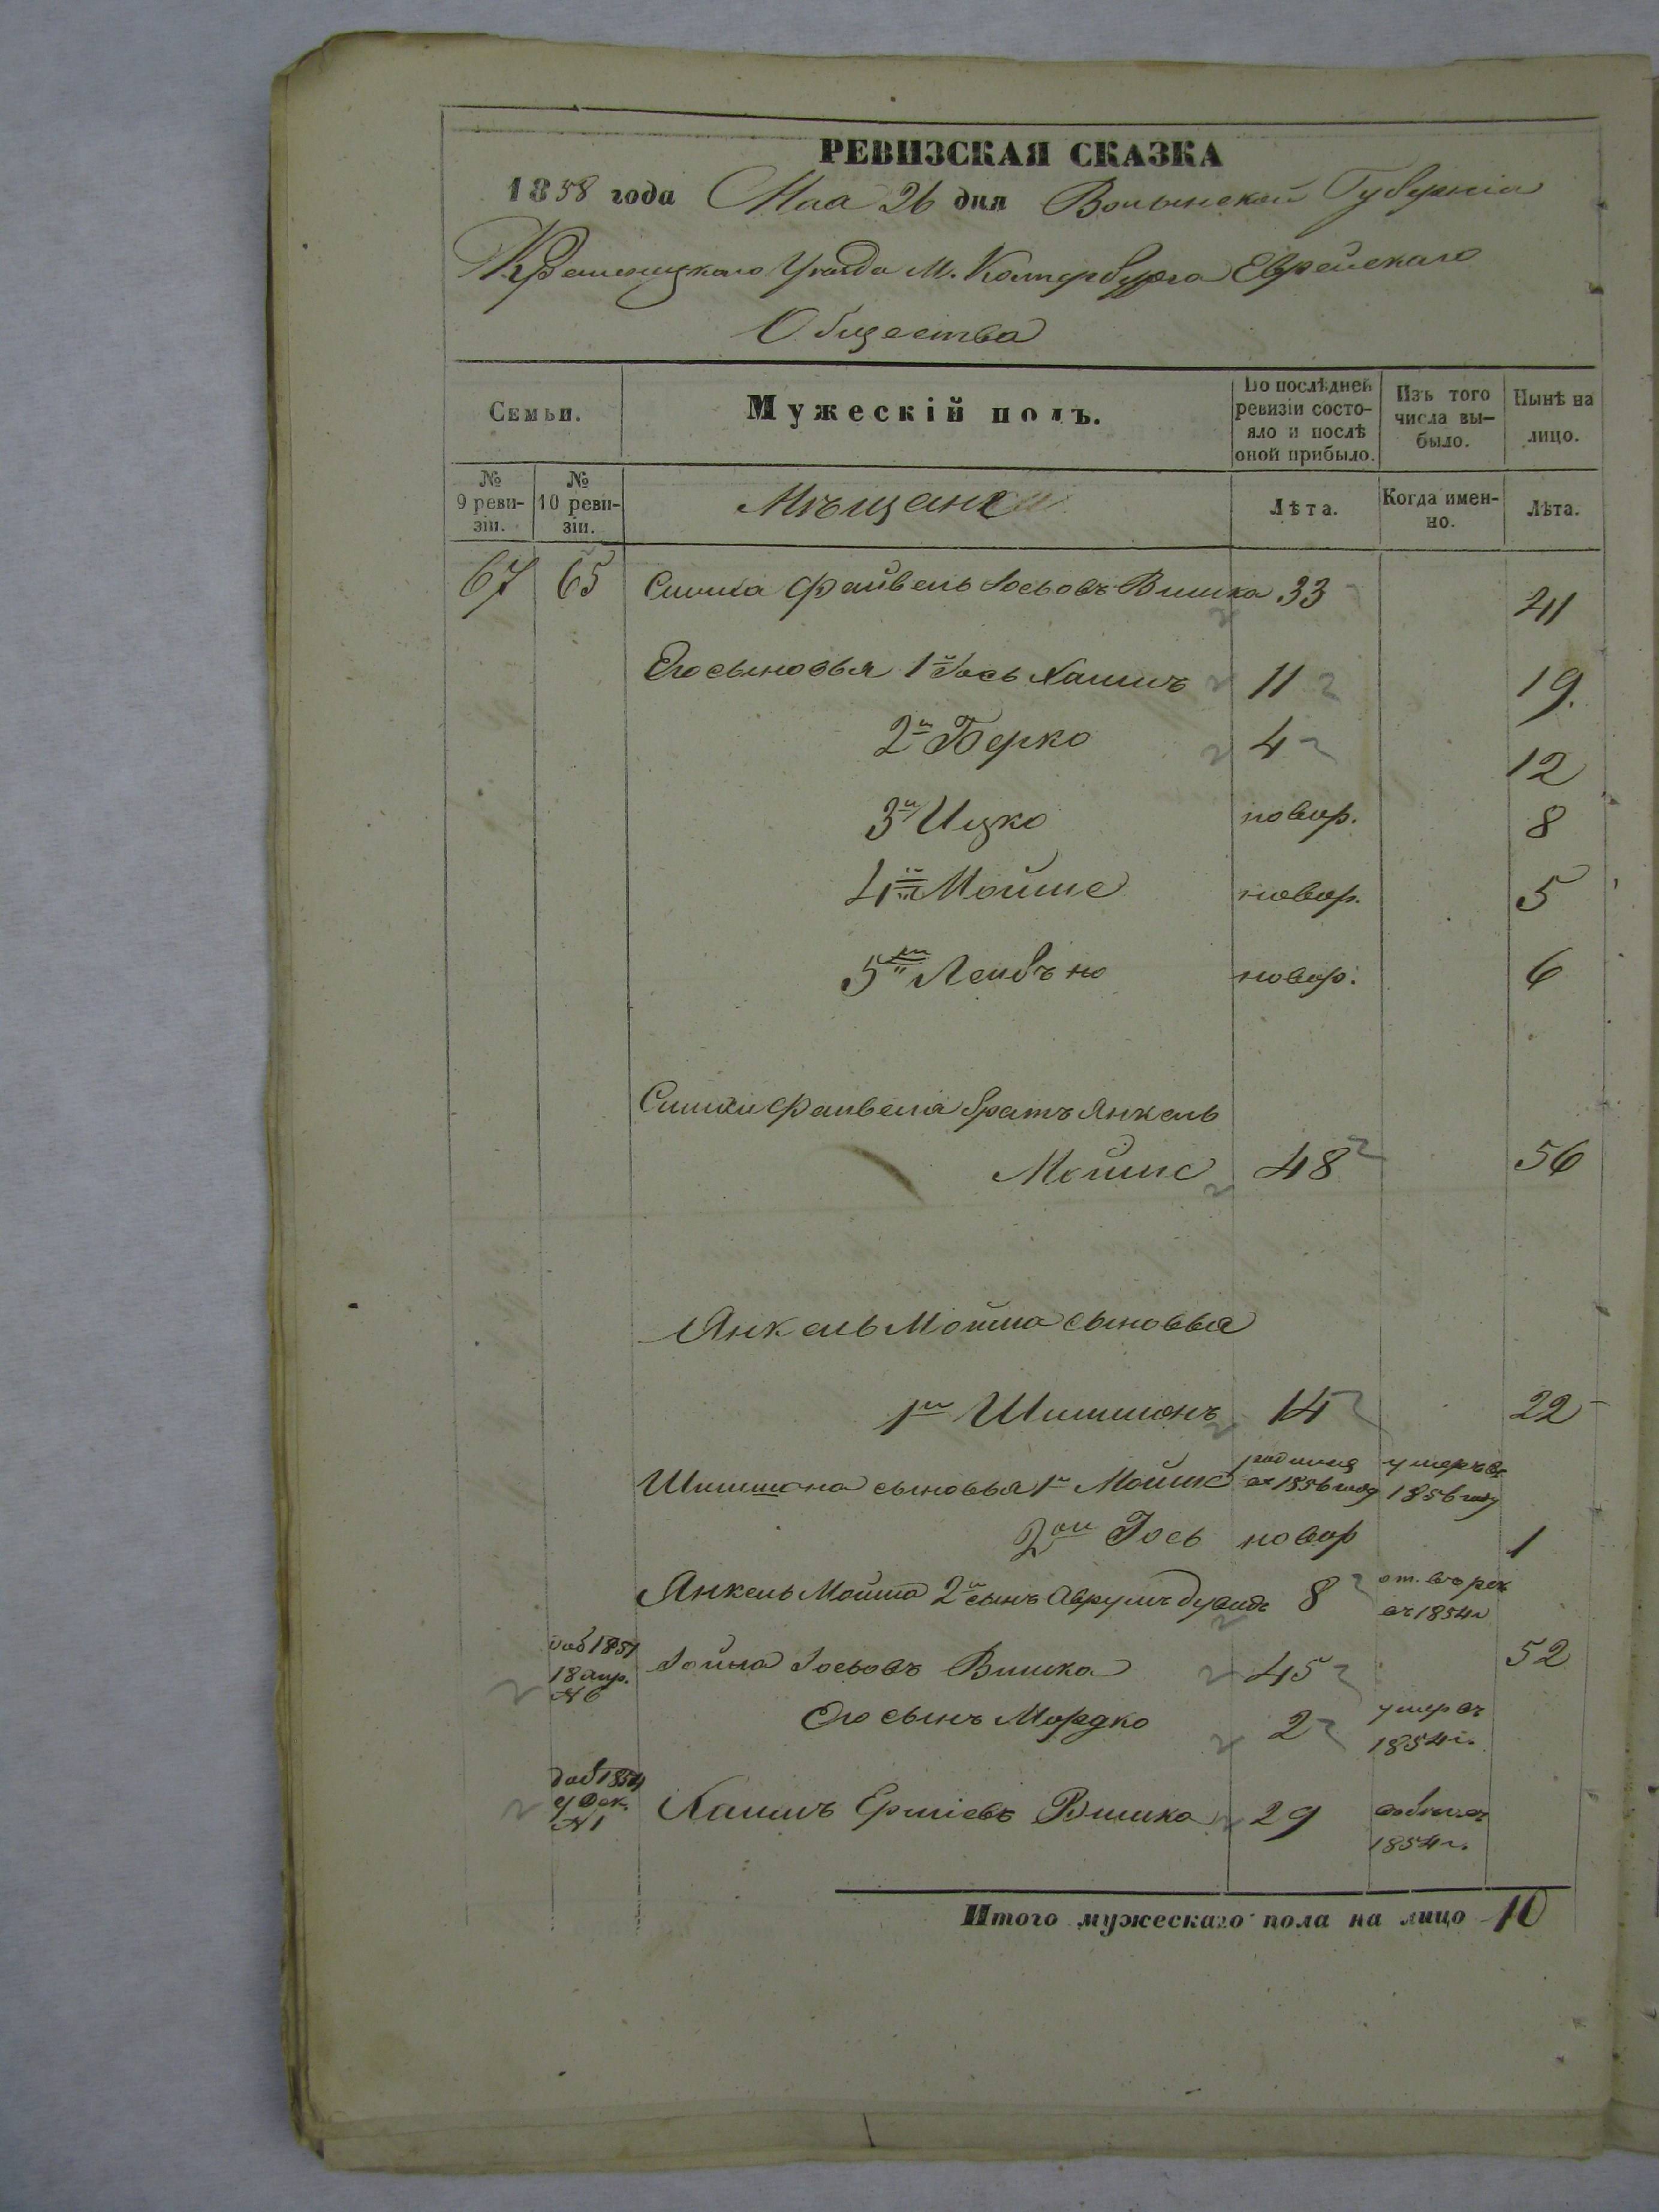 РЕВИЗСКАЯ СКАЗКА
1858 года Мая 26 дня Волынской Губернiи
Кременецкаго Уѣзда М. Катербурга Еврейскаго
Общества
Семьи. Мужескiй полъ. Во послѣдней ревизiи состо- яло и послѣ оной прибыло. Изъ того числа вы- было. Нынѣ на лицо.
№ 9 реви- зiи. № 10 реви- зiи. Мѣщане Лѣта. Когда имен- но. Лѣта.
67 65 Симха Файвель Iосьовъ Вишка 33 41
Его сыновья 1й Iось Хаимъ 11 19.
2й Берко 4 12
3й Ицко новор. 8
4й Мойше новор. 5
5й Лейбъ но новор. 6
Симхи Файвеля братъ Янкель
Мойше 48 56
Янкель Мойша сыновья
1й Шимшонъ 14 22
Шимшона сыновья 1й Мойше 1856 году умеръ въ 1856 году
2ой Iось новор 1
Янкель Мойша 2й сынъ Аврумъ Дувидъ 8 от. въ рек. въ 1854 г
доб 1851 18 апр. №6 Iойна Iосьовъ Вишка 45 52
Его сынъ Мордко 2 умер въ 1854 г.
доб 1854 №1 Хаимъ Ершiевъ Вишка 29 1854 г.
Итого мужескаго пола на лицо 10